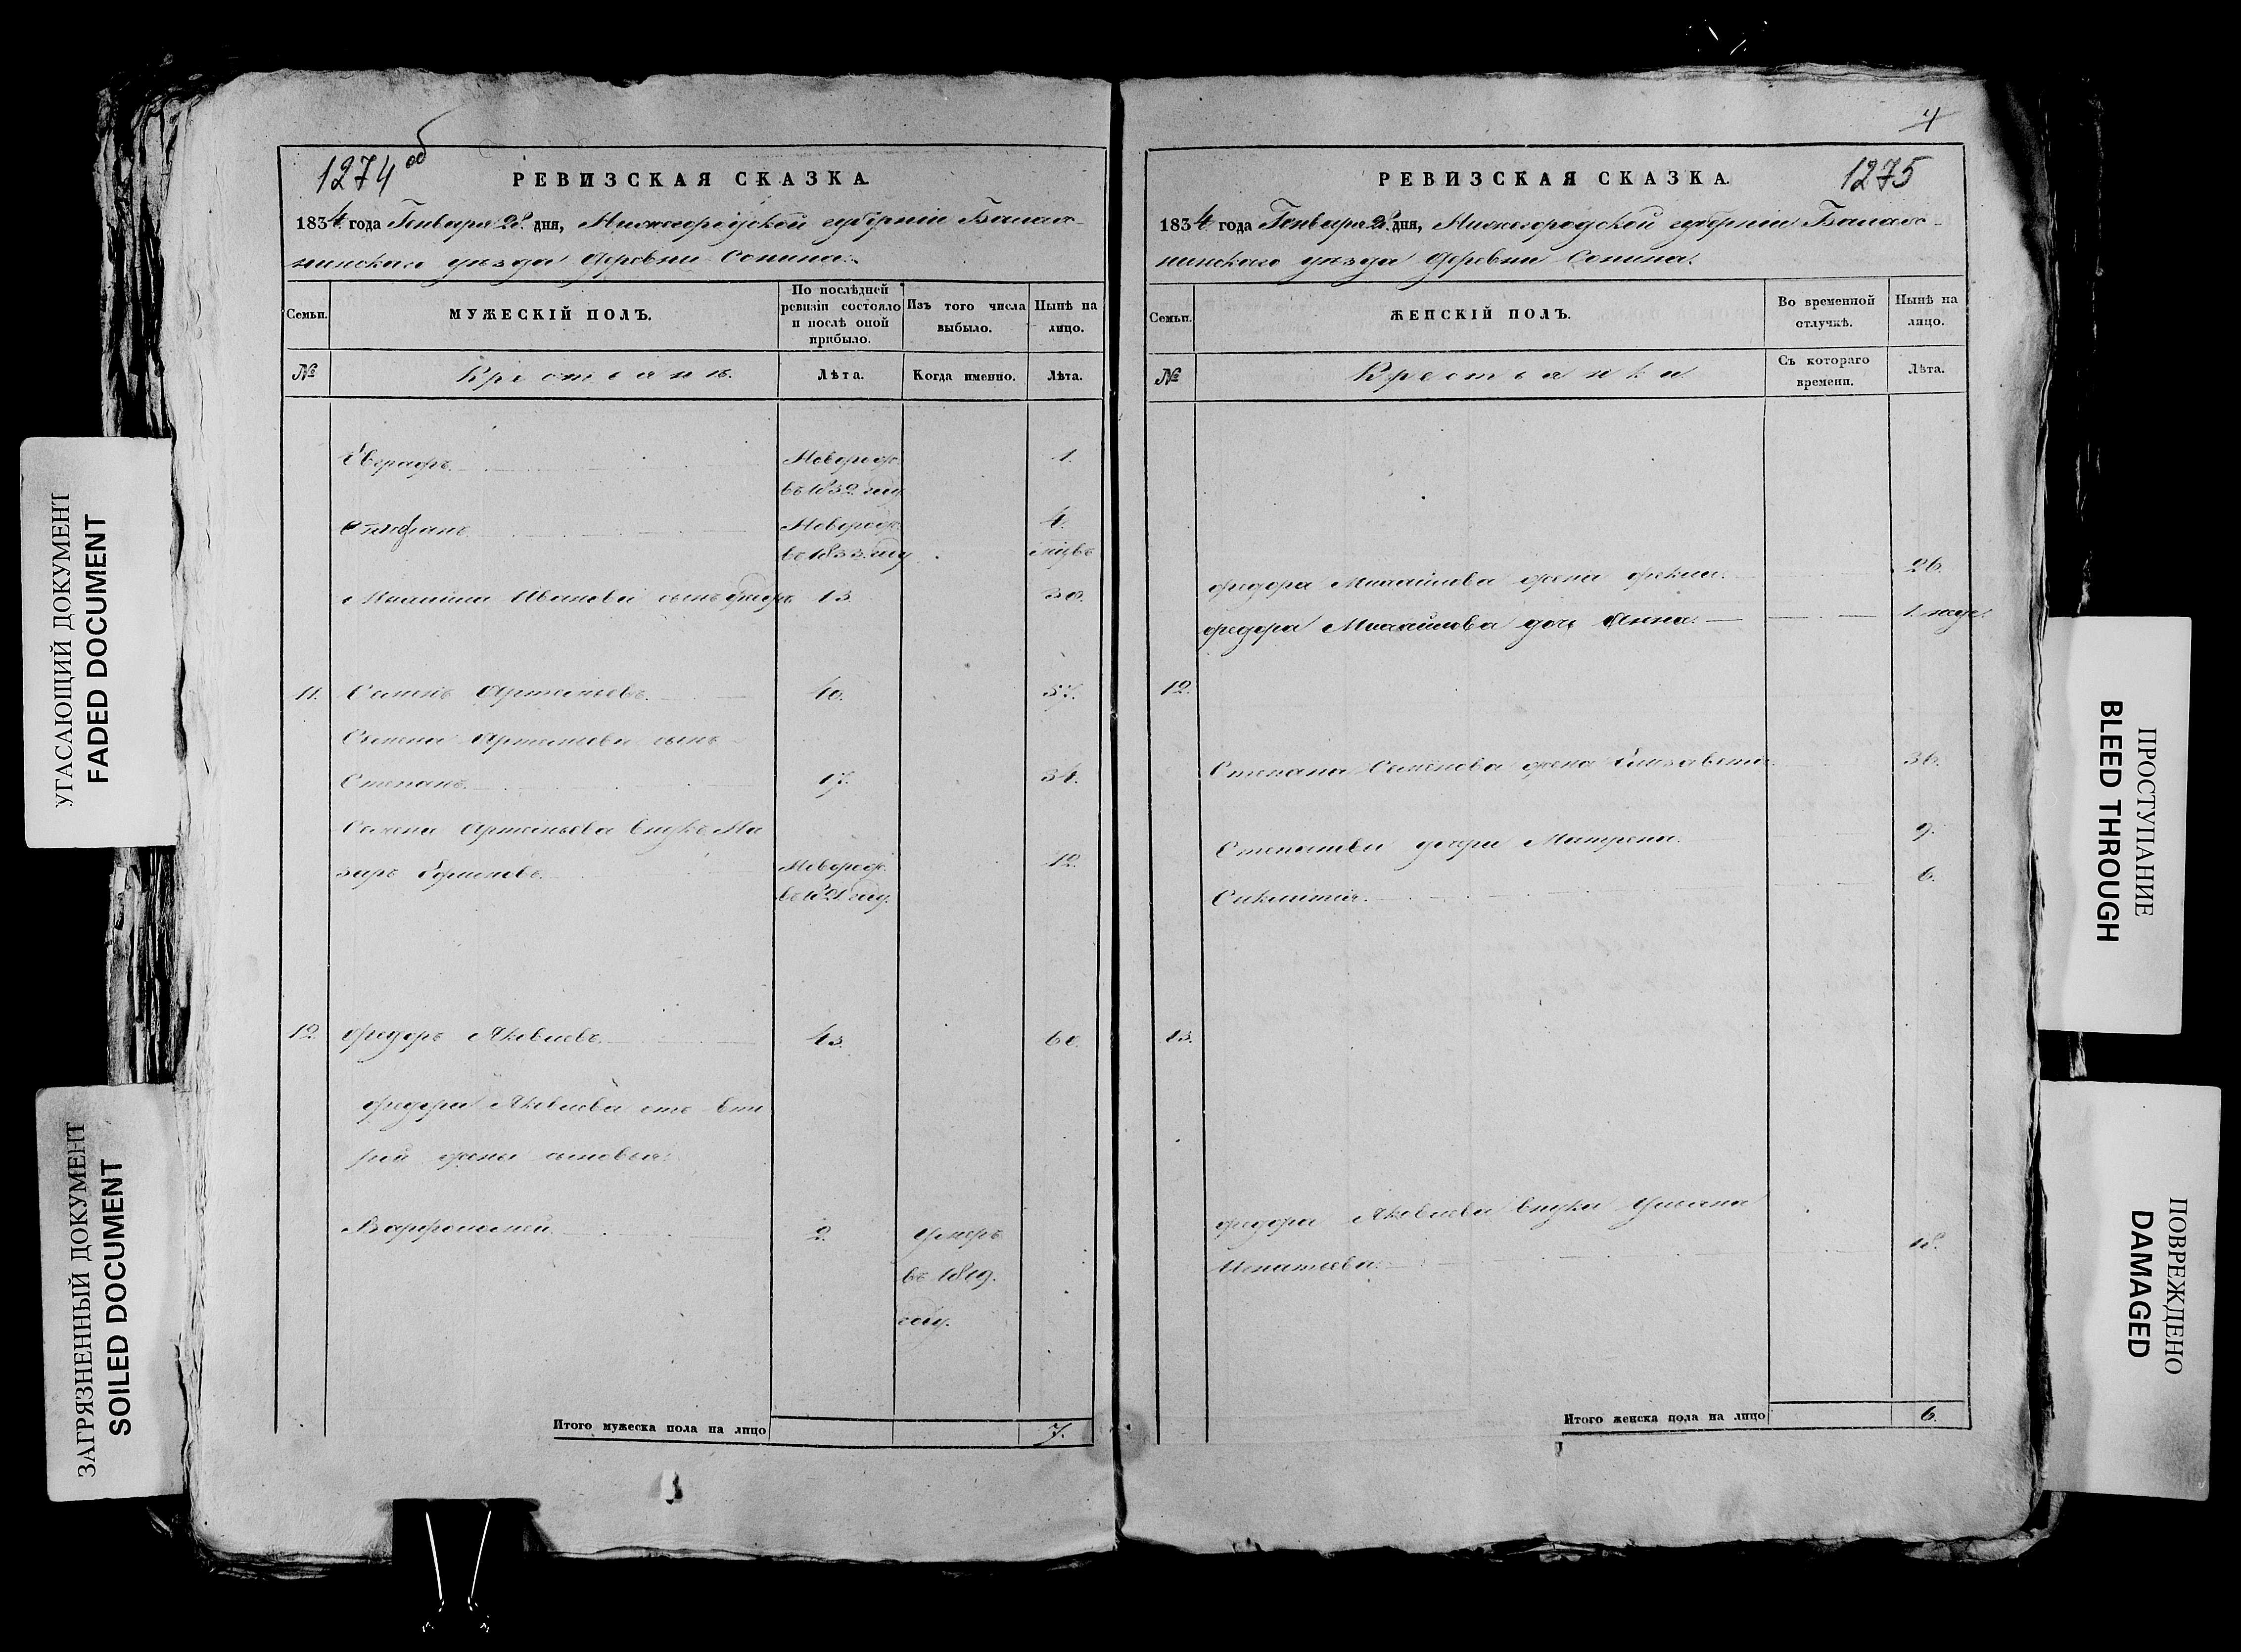 1274 об
РЕВИЗСКАЯ СКАЗКА.
1834 года Генваря 28 дня, Нижегородской губерніи Балах-
нинскаго уѣзда Деревни Сопина.
Семьи.
МУЖЕСКІЙ ПОЛЪ.
По послѣдней
ревизіи состояло
и послѣ оной
прибыло.
Изъ того числа
выбыло.
Нынѣ на
лицо.
№
Крестьянъ.
Лѣта.
Когда именно.
Лѣта.
Евграфъ. Новорож. 1.
въ 1832 году
Новорож. 4.
въ 1833 году мцвъ
Михайлы Иванова сынъ Федоръ 13. 30.
11. Семенъ Артемьевъ. 40. 57.
Семена Артемьева сынъ
Степанъ. 17. 34.
Семена Артемьева внукъ На
заръ Новорож. 12.
въ 1821 году.
12. Федоръ Яковлевъ. 43. 60.
Федора Яковлева отъ вто
рой жены сыновья:
Варфоломей. 2. умеръ
въ 1819.
году.
Итого мужеска пола на лицо 7.
4
1275
РЕВИЗСКАЯ СКАЗКА.
1834 года Генваря 28 дня, Нижегородской губерніи Балах-
нинскаго уѣзда Деревни Сопина.
Семьи.
ЖЕНСКІЙ ПОЛЪ.
Во временной
отлучкѣ.
Нынѣ на
лицо.
№
Крестьянки.
Съ котораго
времени.
Лѣта.
Федора Михайлова жена Фекла. 26.
Федора Михайлова дочь Анна. 1.
12.
Степана Семенова жена Елизавета. 36.
Степановы дочери Матрена. 9.
6.
13.
Федора Яковлева внука Ульяна
Игнатьева. 18.
Итого женска пола на лицо 6.
УГАСАЮЩИЙ ДОКУМЕНТ
FADED DOCUMENT
ЗАГРЯЗНЕННЫЙ ДОКУМЕНТ
SOILED DOCUMENT
ПРОСТУПАНИЕ
BLEED THROUGH
ПОВРЕЖДЕНО
DAMAGED